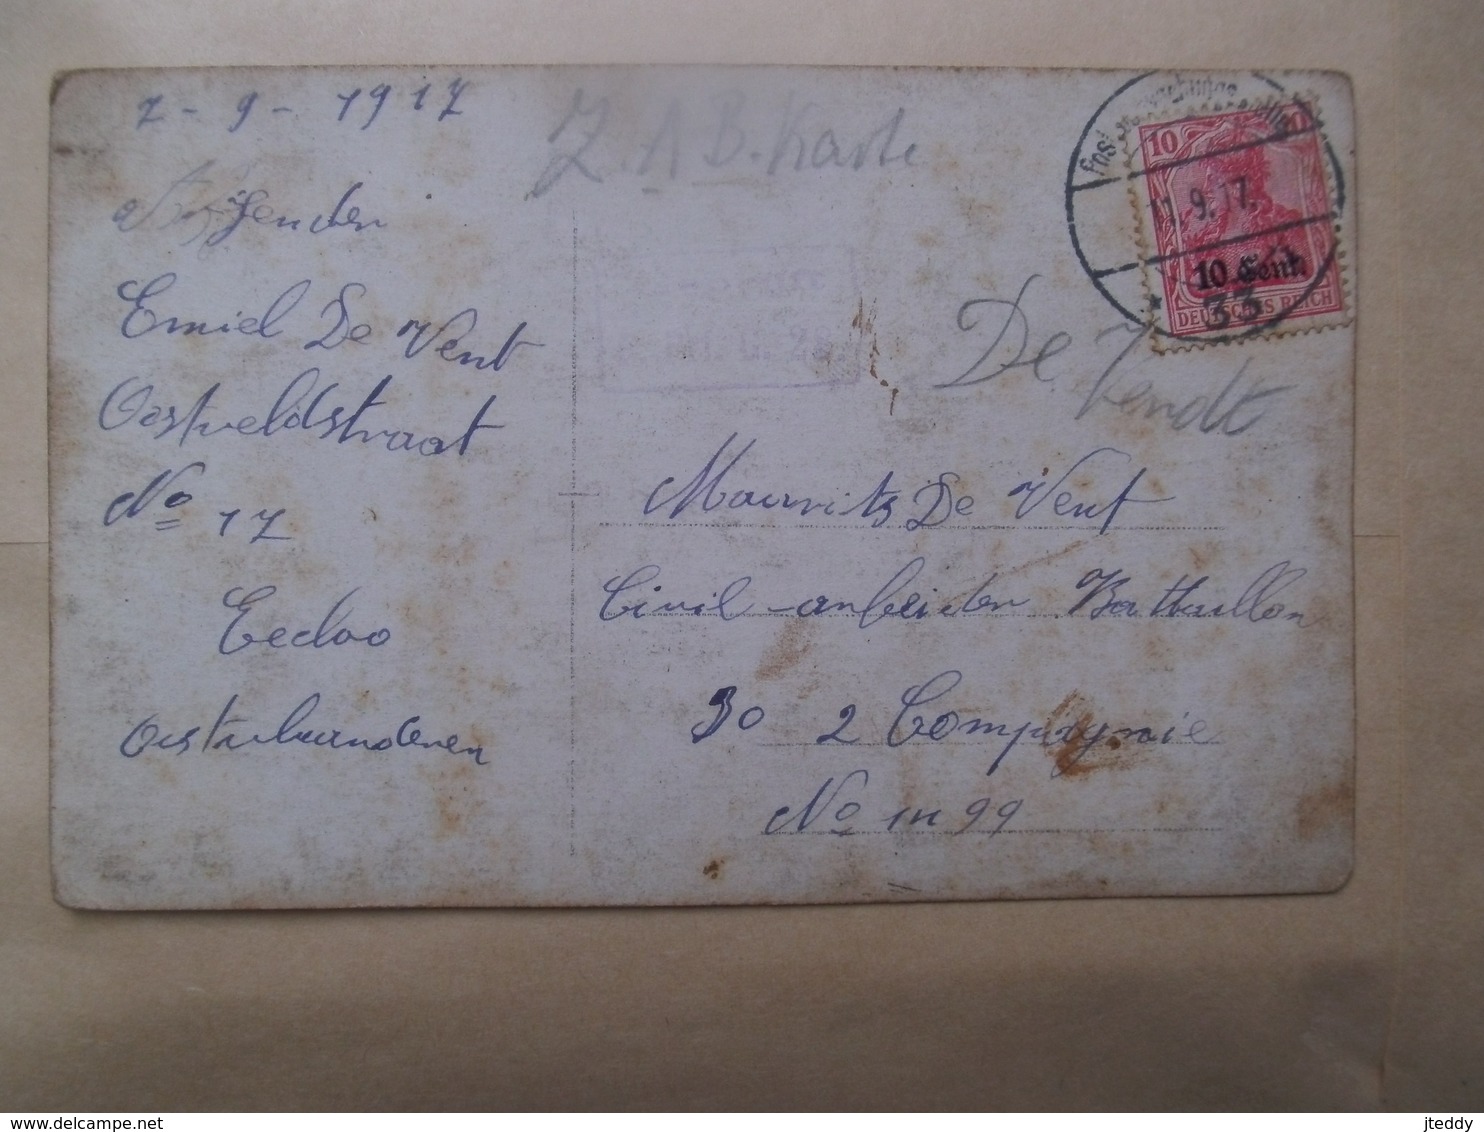 7 - 9 - 1917
Z.A B. Karte
Afzender
Emiel De Vent
Oostveldstraat
No 17
Eecloo
Oostvlaanderen
10
11. 9. 17.
10 Cent.
DEUTSCHES REICH
33
De Vendt
Maurits De Vent
Civil-arbeiter Battaillon
30 2 Compagnie
No 99
delcampe.net
jteddy